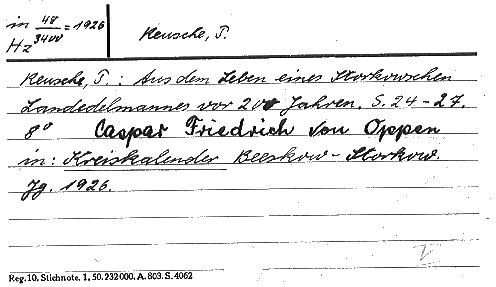 in 48/3400 = 1926
Hz
Reusche, T.
Reusche, T.: Aus dem Leben eines Storkowschen
Landedelmannes vor 200 Jahren. S. 24-27.
8° Caspar Friedrich von Oppen
in: Kreiskalender Beeskow-Storkow.
Jg. 1926.
Reg. 10. Stichnote. 1. 50. 232 000. A. 803. S. 4062